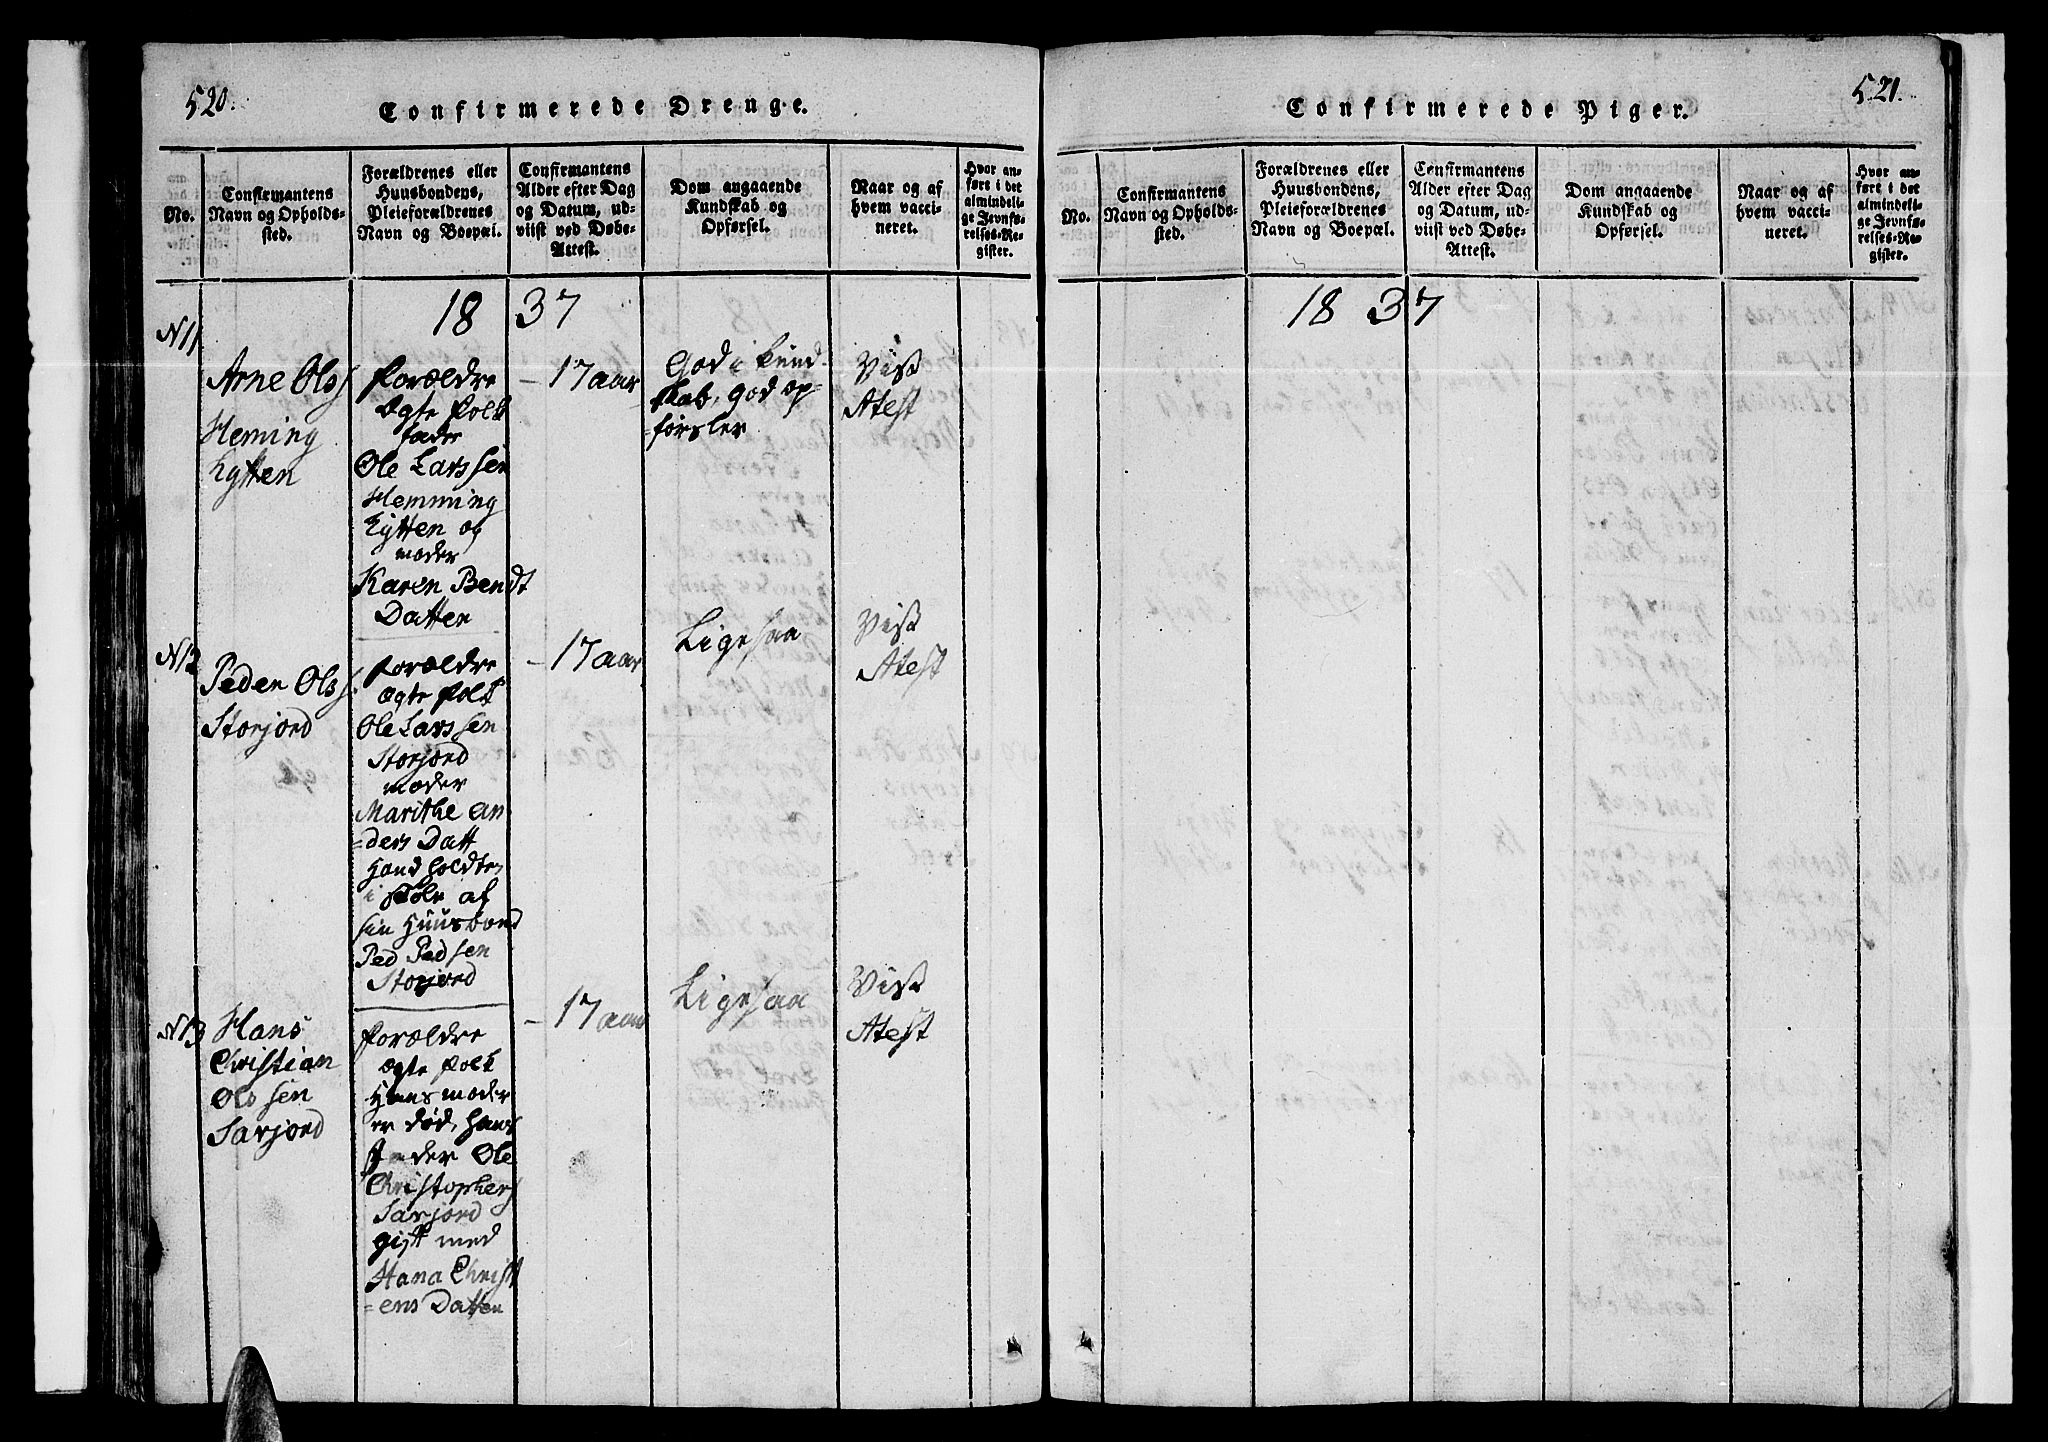 520.
Confirmerede Drenge.
No.
Confirmantens
Navn og Opholds-
sted.
Forældrenes eller
Huusbondens,
Pleieforældrenes
Navn og Boepæl.
Confirmantens
Alder efter Dag
og Datum, ud-
viist ved Døbe-
Attest.
Dom angaaende
Kundskab og
Opførsel.
Naar og af
hvem vacci-
neret.
Hvor an-
ført i det
almindeli-
ge Jevnfø-
relses-Re-
gister.
1837
N11
Arne Ols
Heming
Hytten
Forældre
Ægte Folk
fader
Ole Larssen
Hemming
Hytten og
moder
Karen Bendt
Datten
- 17 aar
God i Kund
=skab, god op
=førsler
Vist
Atest
N12
Peder Ols
Storjord
Forældre
Ægte Folk
Ole Larssen
Storjord
moder
Marithe An
=ders Datt
Hand holdte
i skole af
sin Huusbond
Ped Pedsen
Storjord
- 17 aar
Ligesaa
Vist
Atest
N13
Hans
Christian
Olssen
Sarjord
Forældre
Ægte Folk
Hans moder
er død, hans
Fader Ole
Christophers
Sarjord
gift med
Hana Christ
=ens Datten
- 17 aar
Ligesaa
Vist
Atest
521.
Confirmerede Piger.
No.
Confirmantens
Navn og Opholds-
sted.
Forældrenes eller
Huusbondens,
Pleieforældrenes
Navn og Boepæl.
Confirmantens
Alder efter Dag
og Datum, ud-
viist ved Døbe-
Attest.
Dom angaaende
Kundskab og
Opførsel.
Naar og af
hvem vacci-
neret.
Hvor an-
ført i det
almindeli-
ge Jevnfø-
relses-Re-
gister.
1837